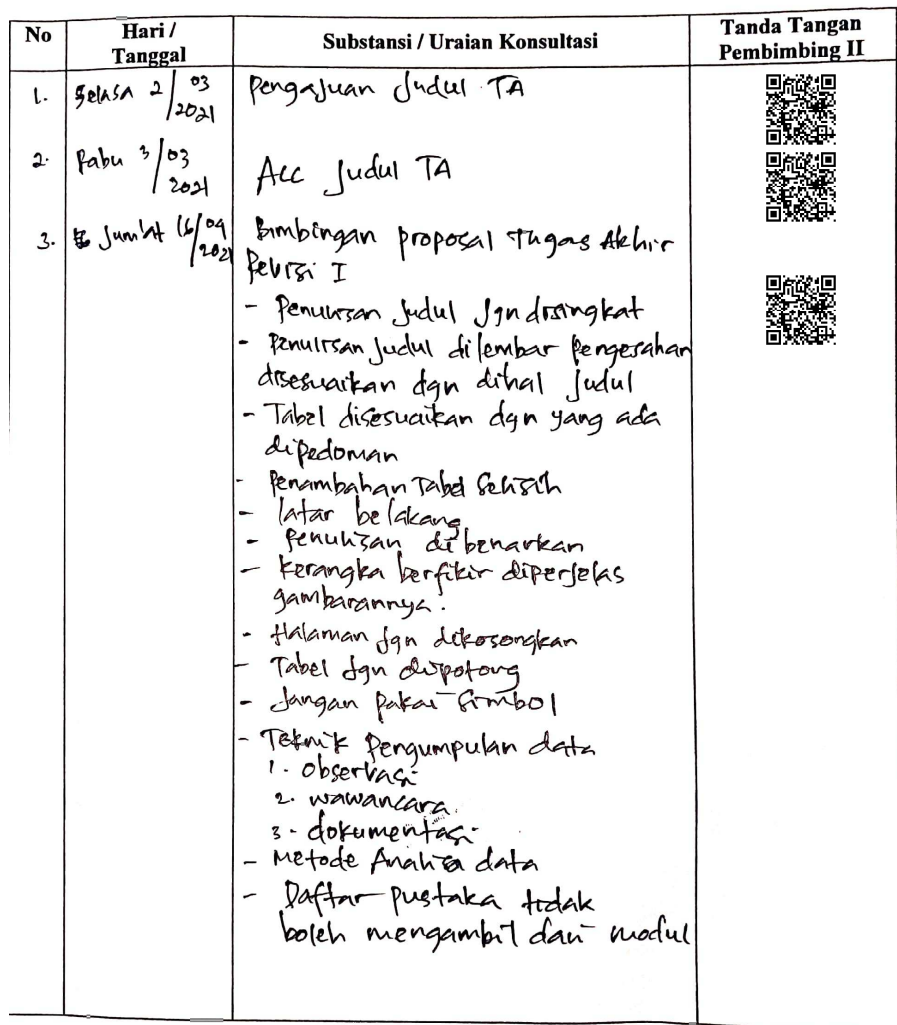 No Hari / Tanggal Substansi / Uraian Konsultasi Tanda Tangan Pembimbing II
1. Selasa 2/03 2021 Pengajuan Judul TA
2. Rabu 3/03 2021 Acc Judul TA
3. Jum'at 16/04 2021 Bimbingan proposal Tugas Akhir
Revisi I
- Penulisan Judul Jgn disingkat
- Penulisan Judul dilembar Pengesahan
disesuaikan dgn dihal Judul
- Tabel disesuaikan dgn yang ada
dipedoman
- Penambahan Tabel Selisih
- latar belakang
- Penulisan dibenarkan
- Kerangka berfikir diperjelas
gambarannya.
- Halaman jgn dikosongkan
- Tabel jgn dipotong
- Jangan Pakai Simbol
- Teknik Pengumpulan data
1. observasi
2. wawancara
3. dokumentasi
- Metode Analisa data
- Daftar pustaka tidak
boleh mengambil dari modul